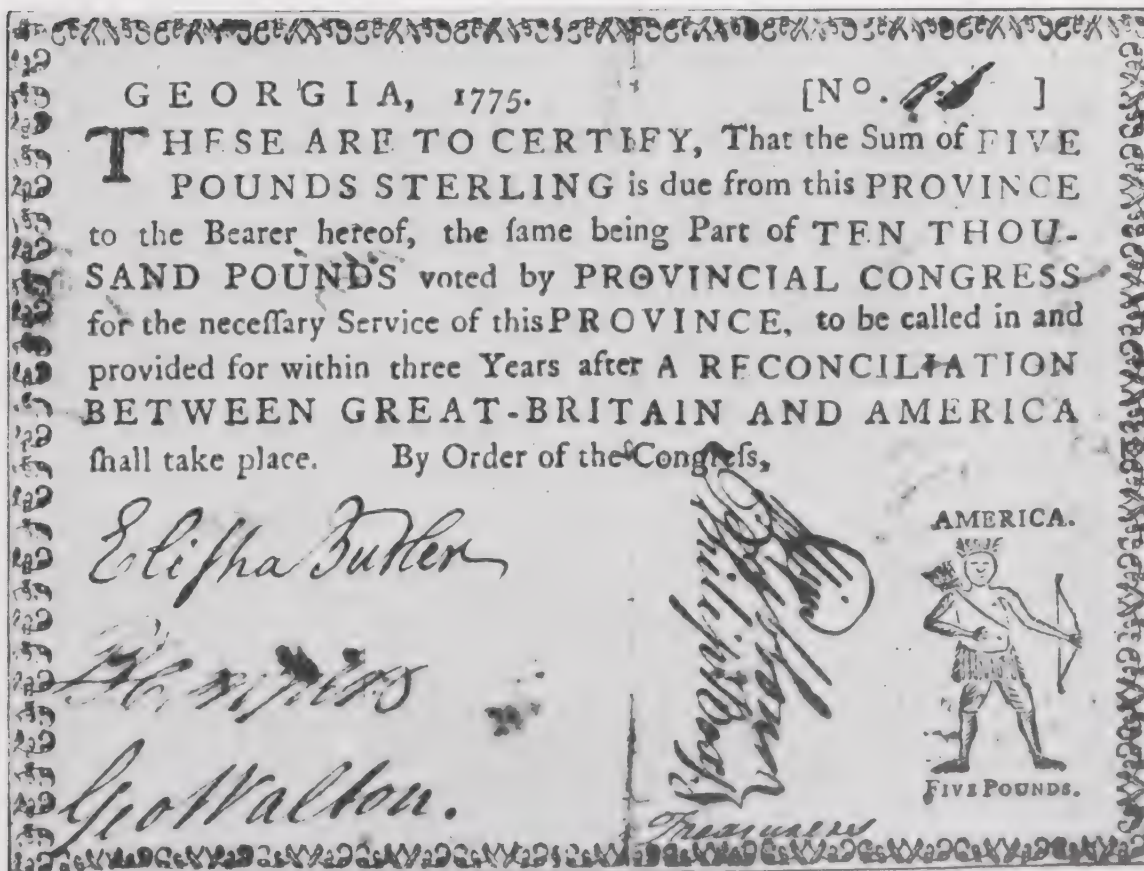 GEORGIA, 1775. [No. ]
THESE ARE TO CERTIFY, That the Sum of FIVE
POUNDS STERLING is due from this PROVINCE
to the Bearer hereof, the ſame being Part of TEN THOU-
SAND POUNDS voted by PROVINCIAL CONGRESS
for the neceſſary Service of this PROVINCE, to be called in and
provided for within three Years after A RECONCILIATION
BETWEEN GREAT-BRITAIN AND AMERICA
ſhall take place. By Order of the Congreſs,
Eliſha Butler
Geo Walton.
Philip Box
Treasurers
AMERICA.
FIVE POUNDS.